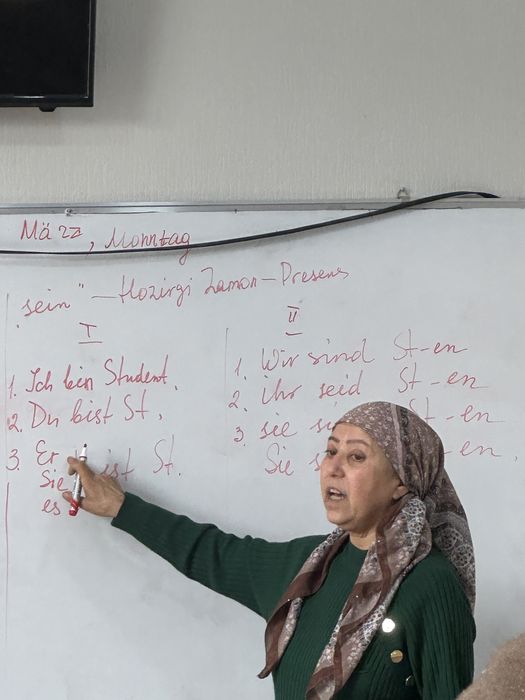 März, Monntag
"sein" — Hozirgi Zamon — Presens
I
1. Ich bin Student.
2. Du bist St.
3. Er ist St.
Sie
es
II
1. Wir sind St-en
2. ihr seid St-en
3. sie St-en
Sie en.